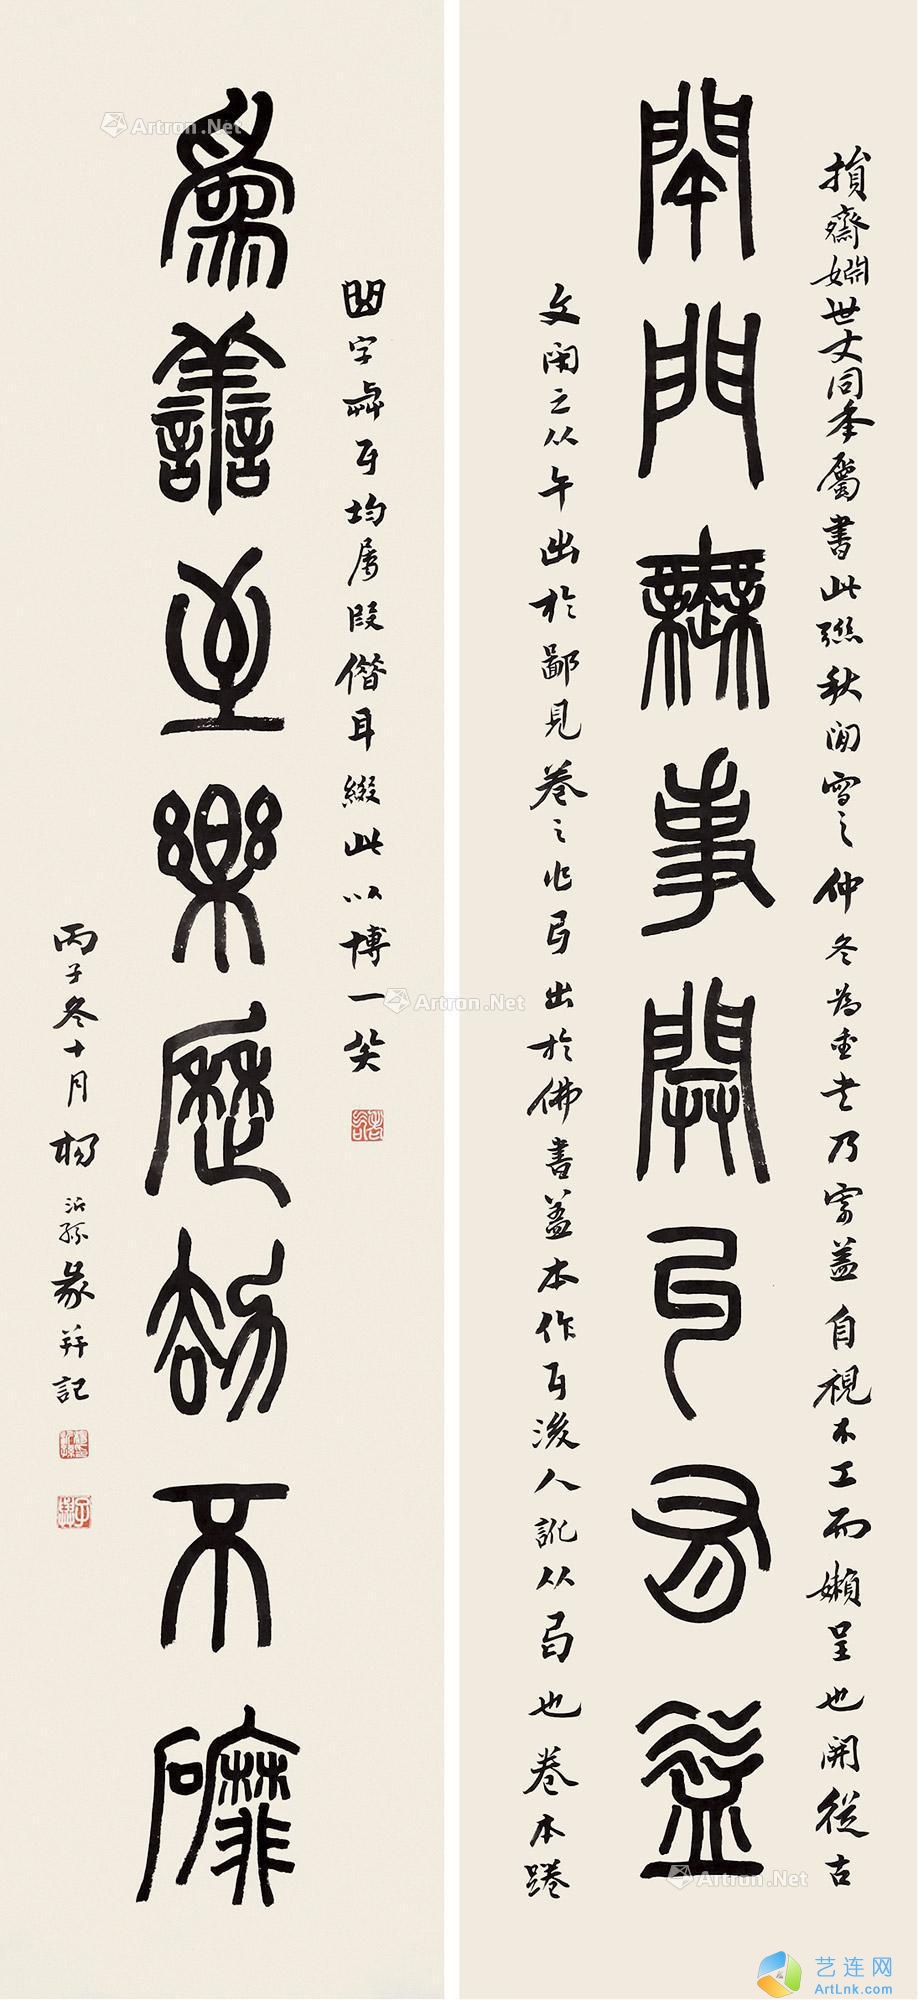 損齋姻世丈同年屬書此聯秋間寫之仲冬為壺丈乃寄蓋自視不工而嬾呈也開從古
閉門無事開卷有益
文閉之从午出於鄙見卷之作㢧出於佛書蓋本作㔾後人訛从弓也卷本踡
曲字與㔾均屬叚借耳綴此以博一笑
為善至樂歷劫不磨
丙子冬十月楊沂孫篆并記
Artron.Net
Artron.Net
Artron.Net
艺连网
ArtLnk.com